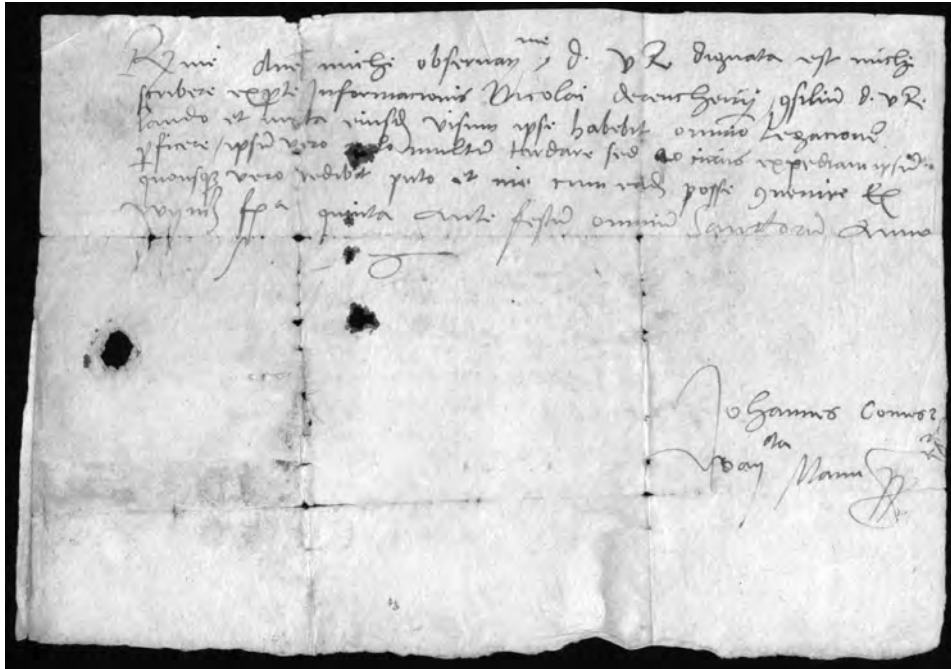 R me dne miche observan me d. v R dignata est miche
scribere exparte Informacionis Nicolai derencheniy, consilium d. v R.
laudo et juxta eiusd visum ipse habebit omnino legacione
perficere, ipsu vero multu tardare sed cicius expediam
quousque vero redibit puto et me cum ead posse convenire Ex
fra quinta Ante festu omniu Sanctoru Anno
Johannes Comes
way da Manu